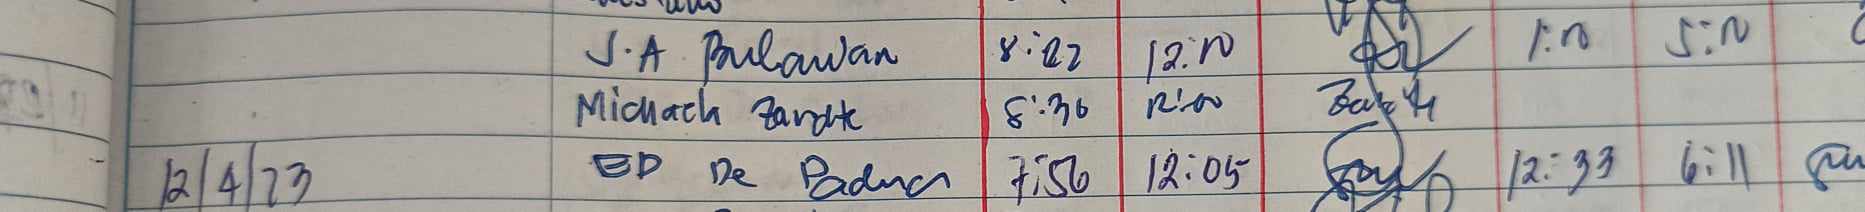 J.A Bulawan 8:22 12:10 1:10 5:10
Michach Zarate 8:36 12:00
12/4/23 ED De Padua 7:56 12:05 12:33 6:11